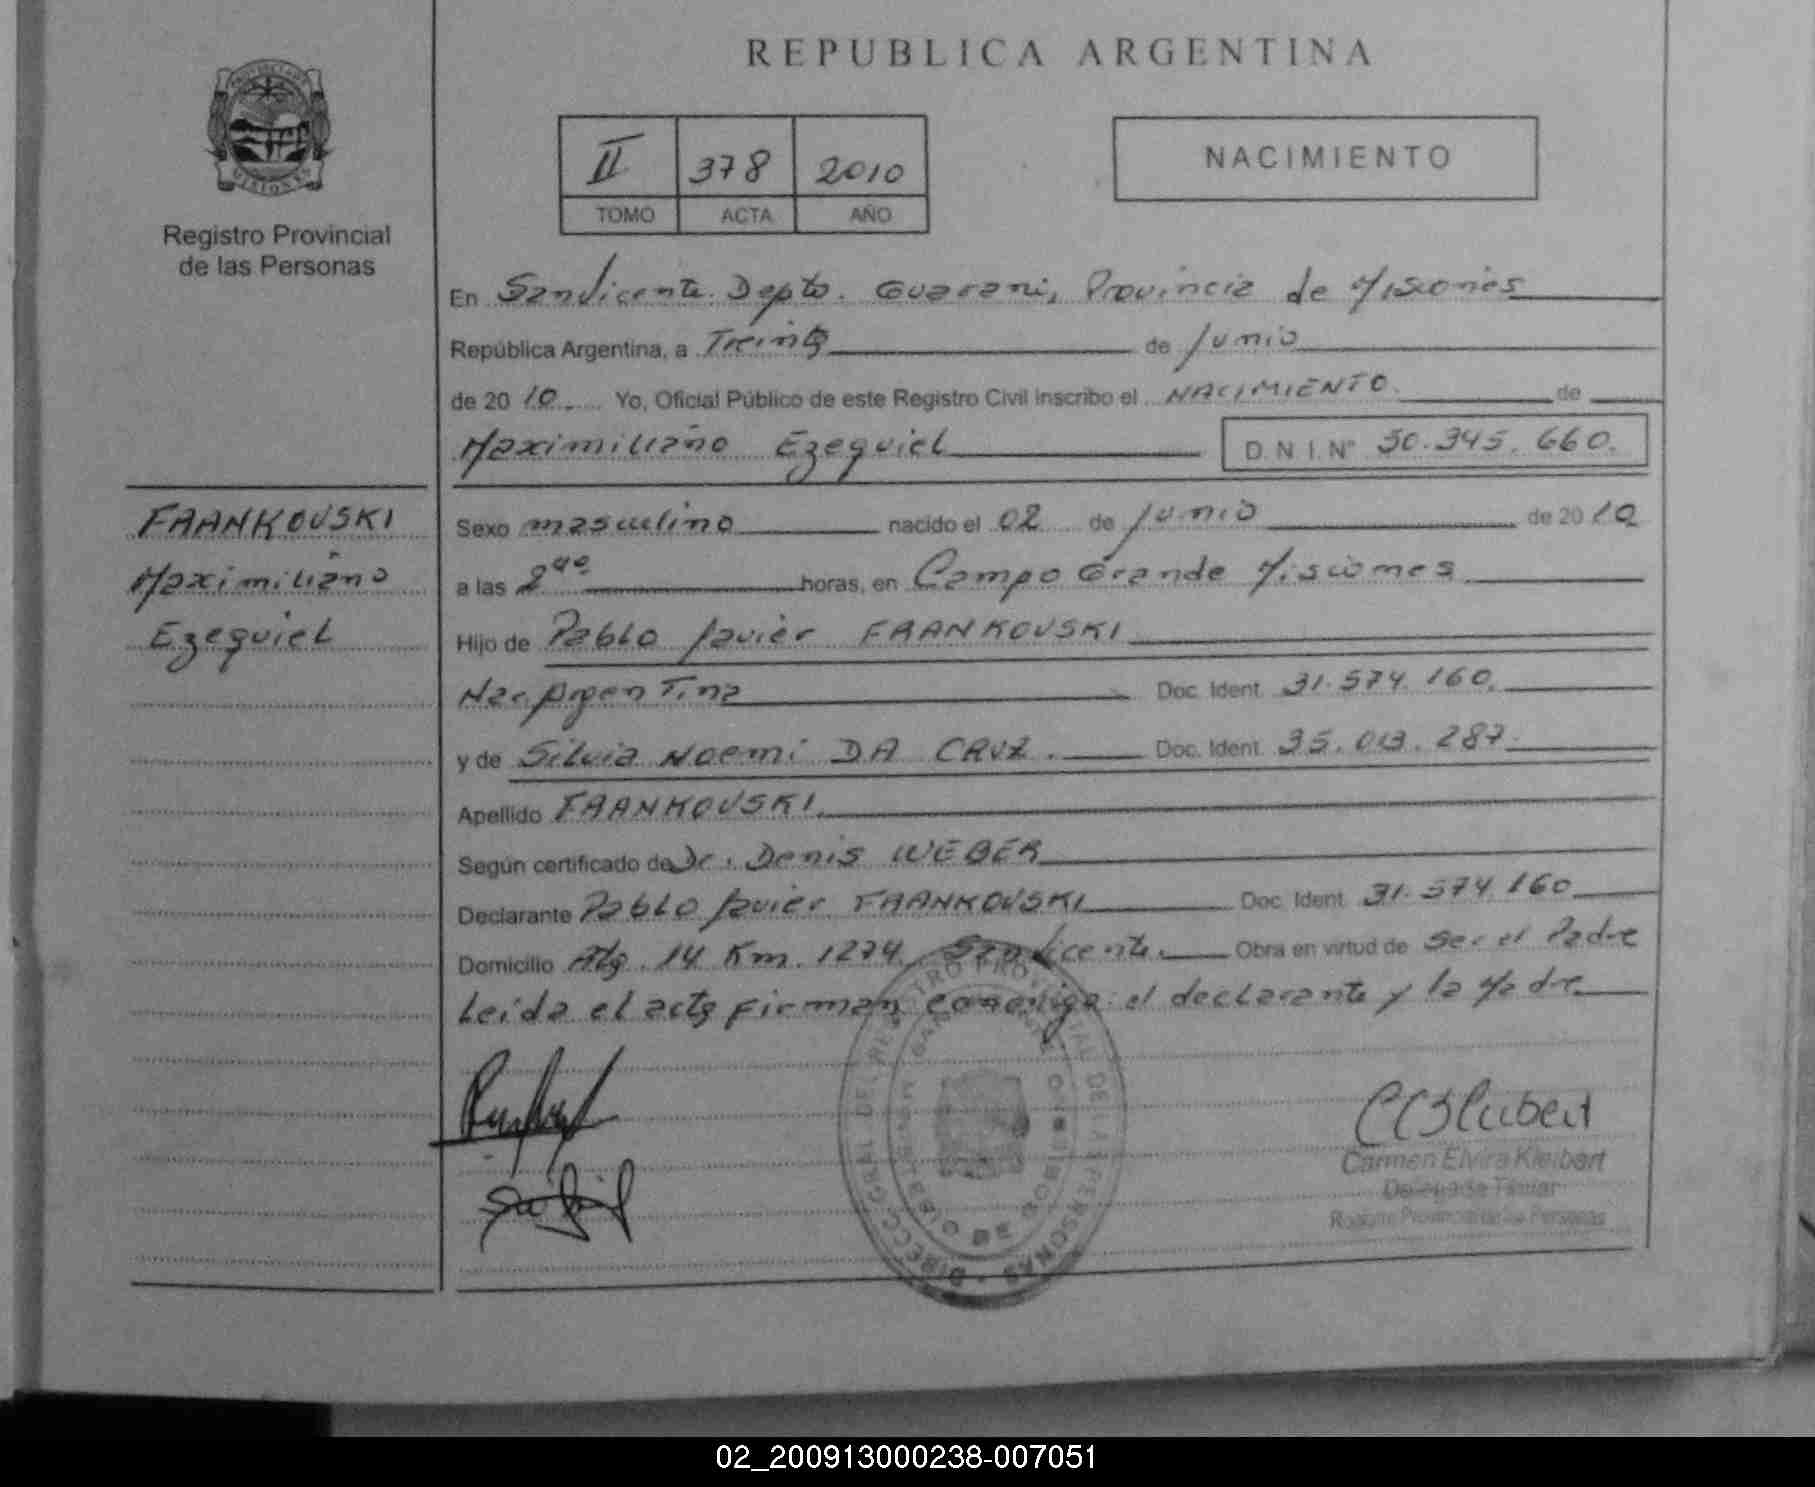 REPUBLICA ARGENTINA
PROVINCIA DE
MISIONES
Registro Provincial
de las Personas
II 378 2010
TOMO ACTA AÑO
NACIMIENTO
En Sanvicente. Depto. Guarani, Provincia de Misiones
República Argentina, a Treinta de Junio
de 2010. Yo, Oficial Público de este Registro Civil inscribo el NACIMIENTO. de
Maximiliano Ezequiel D.N.I.Nº 50.345.660.
FRANKOVSKI
Maximiliano
Ezequiel
Sexo masculino nacido el 02 de Junio de 2010
a las horas, en Campo Grande Misiones
Hijo de Pablo Javier FRANKOVSKI
Nac. Argentina Doc. Ident. 31.574.160.
y de Silvia Noemi DA CRUZ. Doc. Ident. 35.013.287.
Apellido FRANKOVSKI
Según certificado de Dr. Denis WEBER
Declarante Pablo Javier FRANKOVSKI Doc. Ident. 31.574.160
Domicilio 14 Km. 1274. Sanvicente. Obra en virtud de ser el Padre
Leida el acta firman conmigo el declarante y la Madre
Carmen Elvira Kleibert
Delegada Titular
Registro Provincial de las Personas
02_200913000238-007051